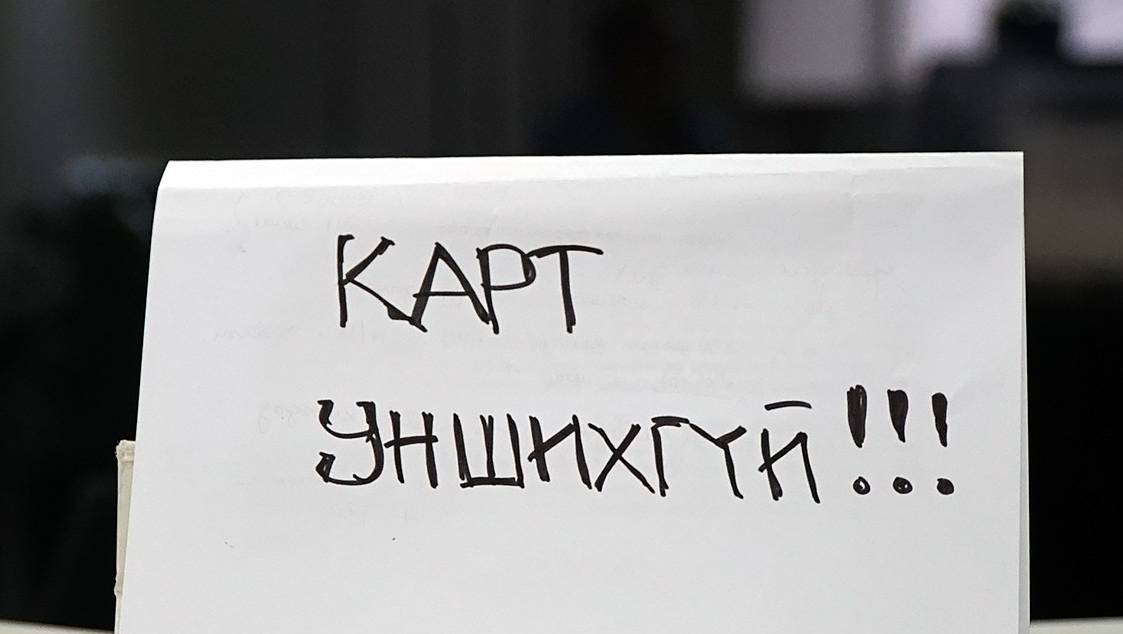 КАРТ
УНШИХГҮЙ!!!